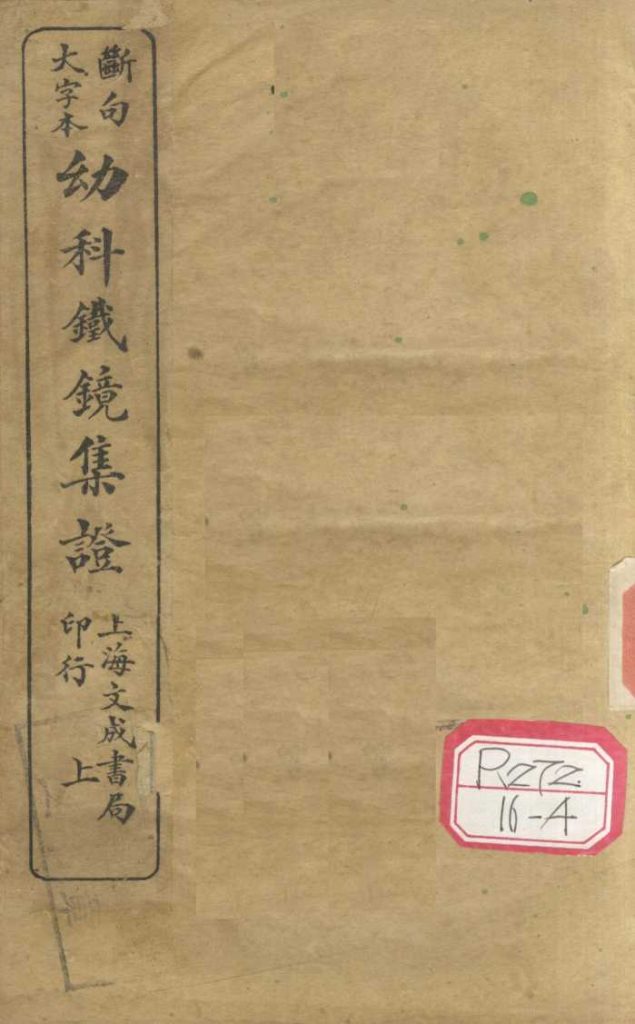 斷句
大字本
幼科鐵鏡集證
上海文成書局
印行
上
R272
16-A